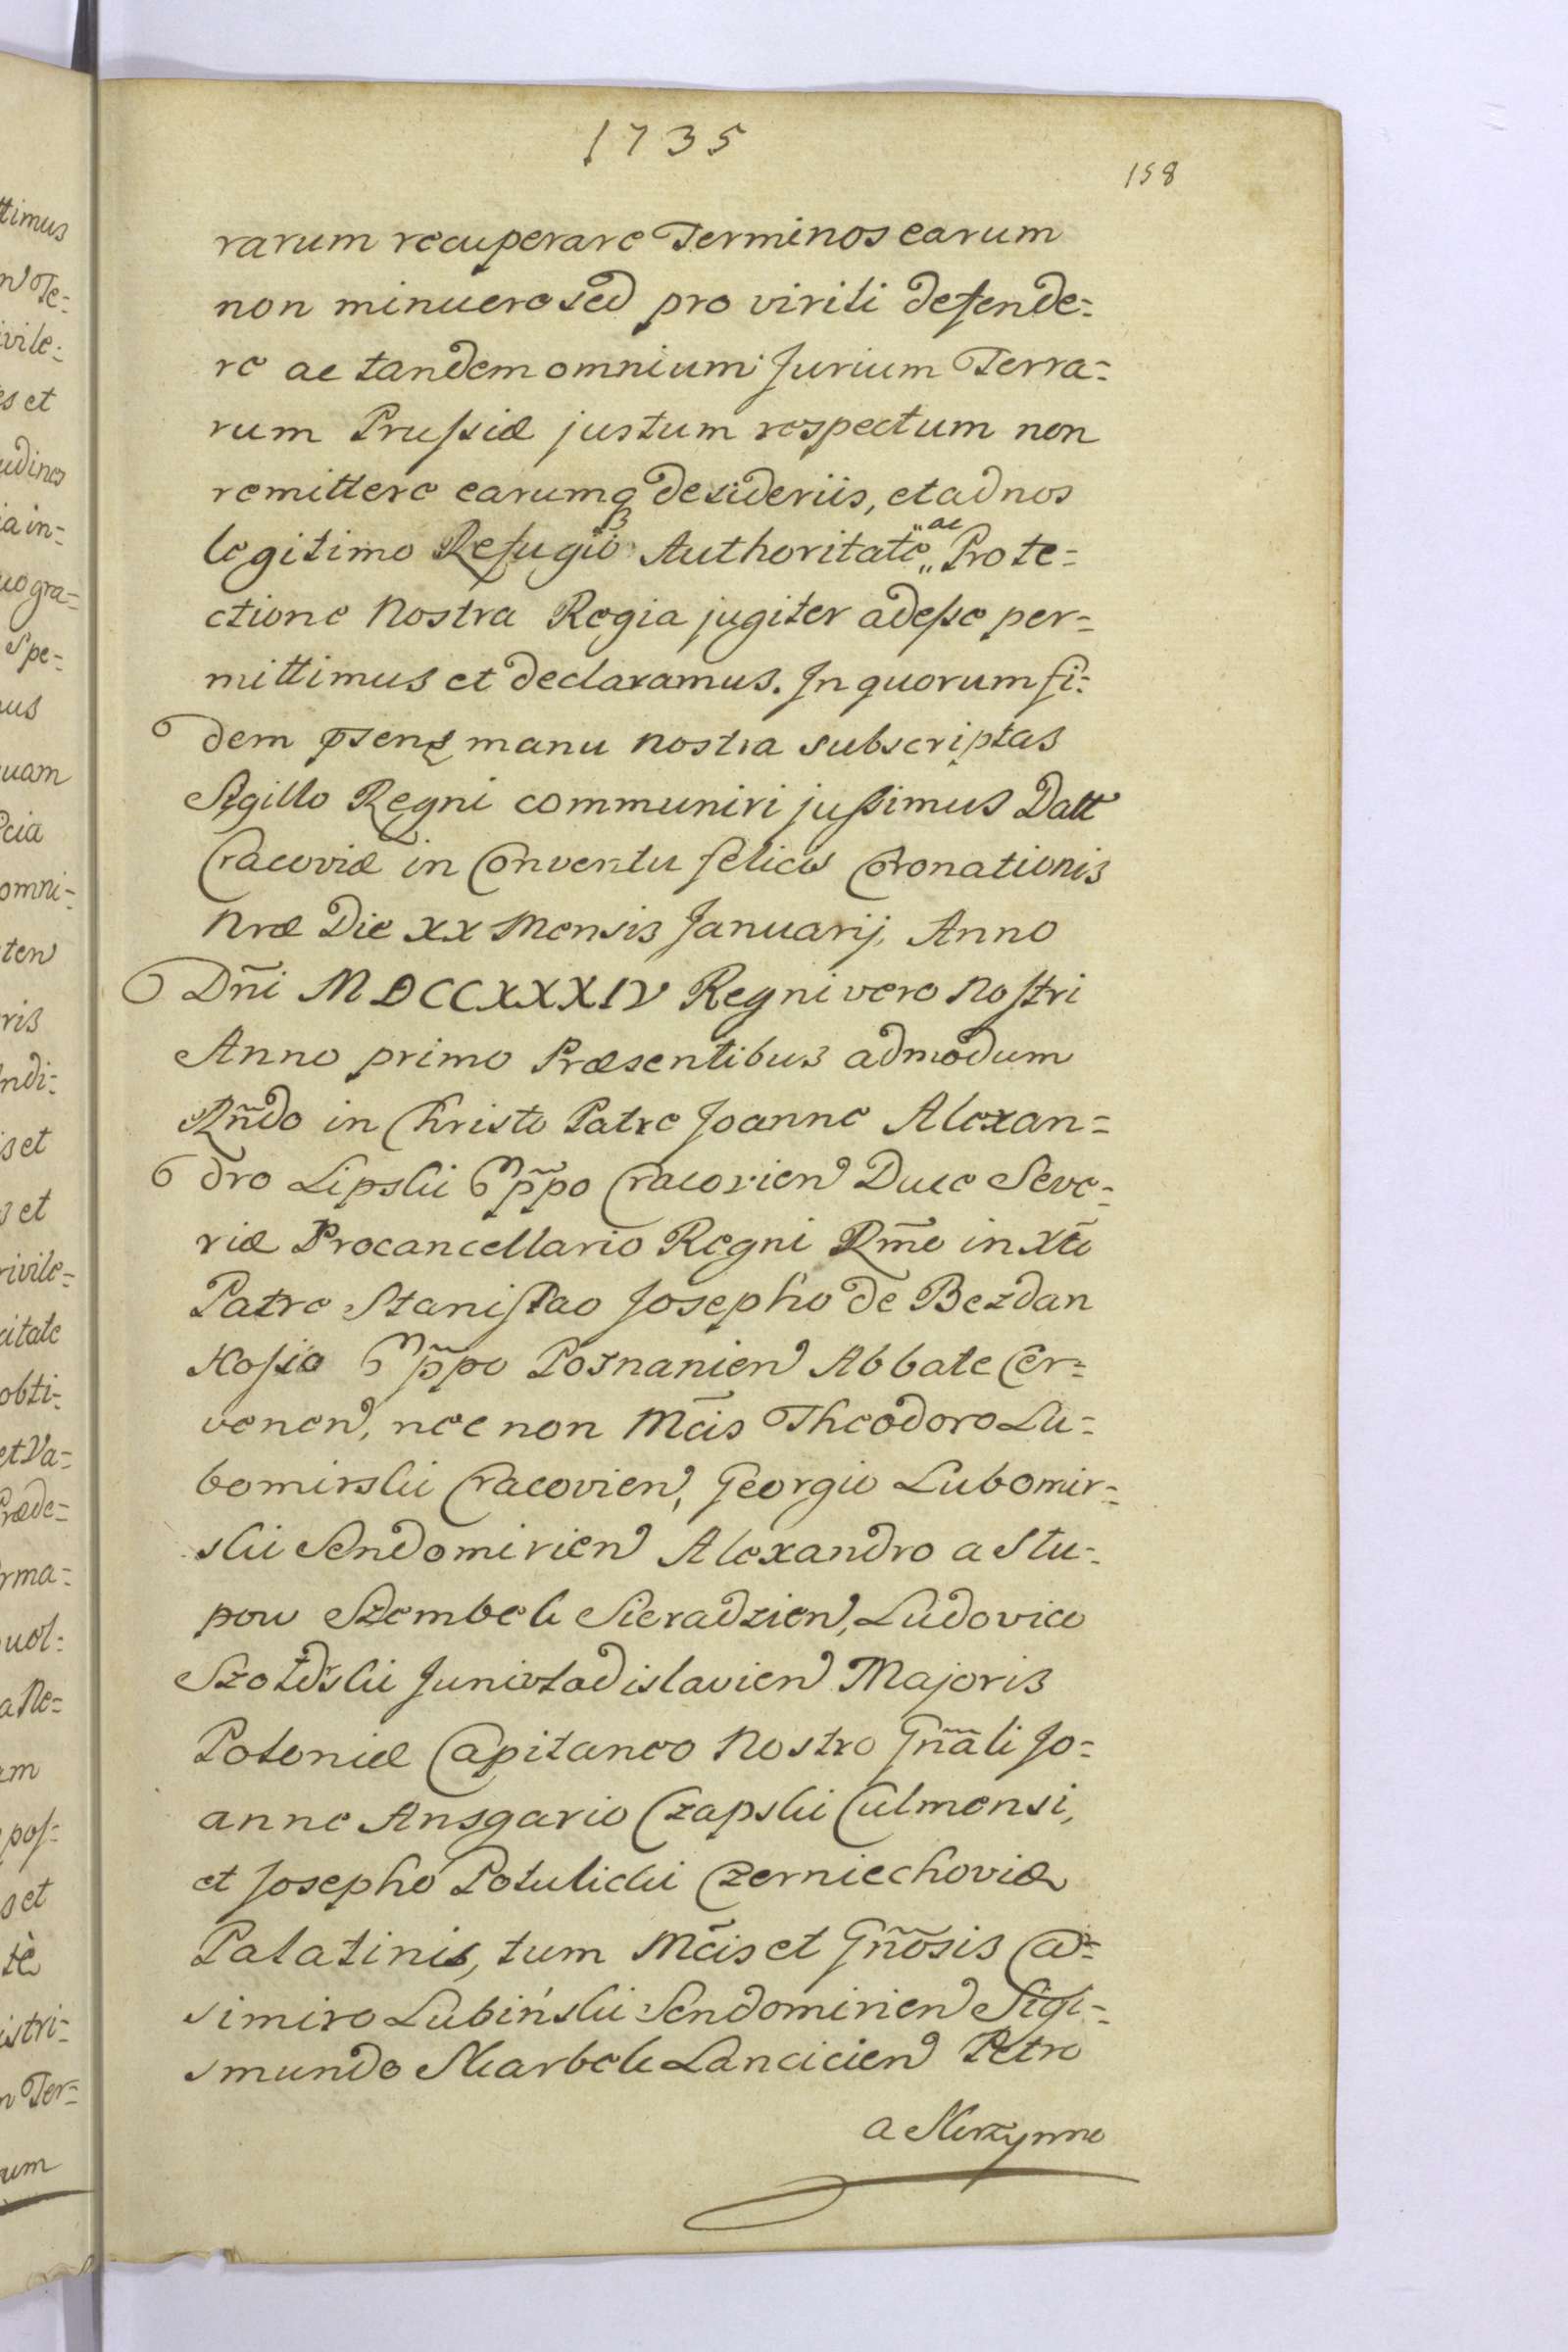 1735
158
rarum recuperare Terminos earum
non minuere sed pro virili defende=
re ac tandem omnium Jurium Terra=
rum Prussiæ justum respectum non
remittere earumq desideriis, et ad nos
legitimo Refugio Authoritate „ac„ Prote=
ctione Nostra Regia jugiter adesse per=
mittimus et declaramus. In quorum fi=
dem pseng manu nostra subscriptas
Sigillo Regni communiri jussimus Datt
Cracoviæ in Conventu felicis Coronationis
Nræ Die XX Mensis Januarij, Anno
Dñi MDCCXXXIV Regni vero Nostri
Anno primo Præsentibus admodum
Rñdo in Christo Patre Joanne Alexan=
dro Lipski Eppo Cracovien Duce Seve=
riæ Procancellario Regni Rm̃o in Xto
Patre Stanislao Josepho de Bezdan
Hosio Eppo Posnanien Abbate Cer=
venen, nec non Mcis Theodoro Lu=
bomirski Cracovien, Georgio Lubomir=
ski Sendomirien Alexandro a Slu=
pow Szembek Sieradzien, Ludovico
Szołdrski Juniwladislavien Majoris
Poloniæ Capitaneo Nostro Gñali Jo=
anne Ansgario Czapski Culmensi,
et Josepho Potulicki Czerniechoviæ
Palatinis, tum Mcis et Gñosis Ca=
simiro Lubiński Sendomirien Sigi=
smundo Skarbek Lancicien Petro
a Skrzynno
ttimus
n Te=
ivile=
es et
udines
ia in=
uo gra=
Spe=
nus
uam
cia
omni=
ten
ris
ndi=
is et
s et
rivile=
citate
obti=
et Va=
Præde=
rma=
uol=
a Ne=
um
pos=
s et
tè
istri=
n Ter=
um